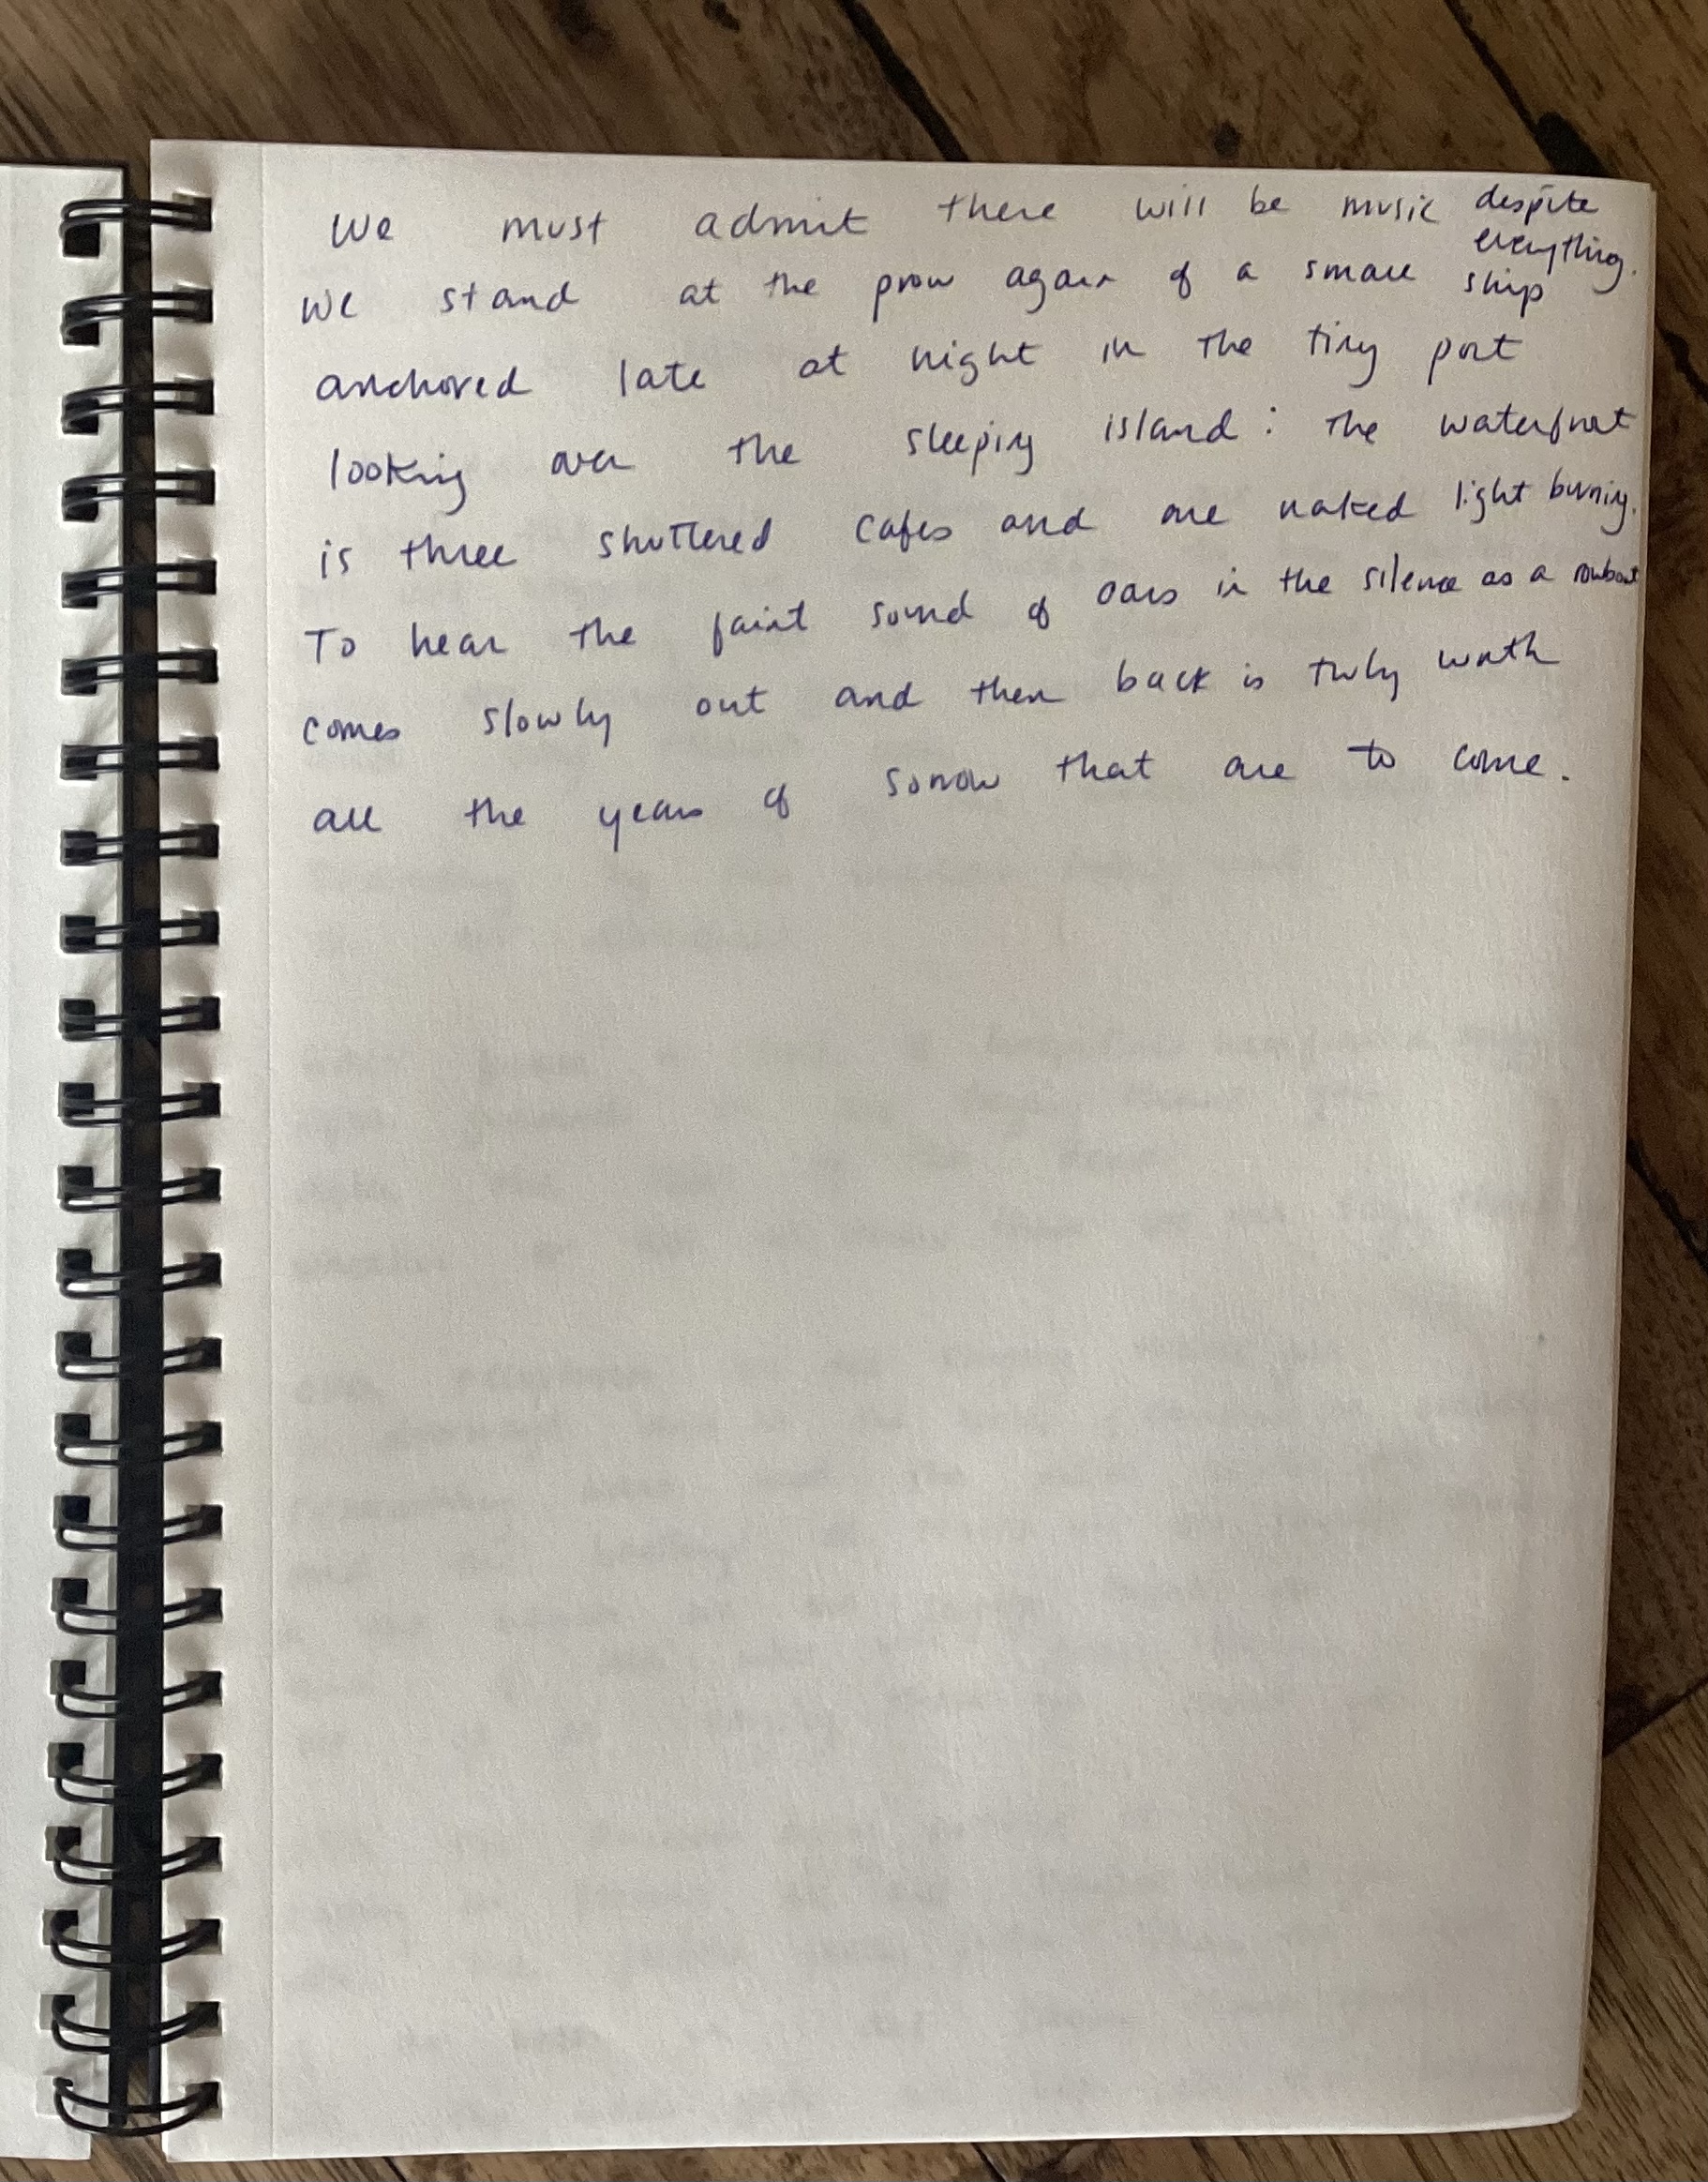 We must admit there will be music despite everything.
We stand at the prow again of a small ship
anchored late at night in the tiny port
looking over the sleeping island: the waterfront
is three shuttered cafes and one naked light burning.
To hear the faint sound of oars in the silence as a rowboat
comes slowly out and then back is truly worth
all the years of sorrow that are to come.